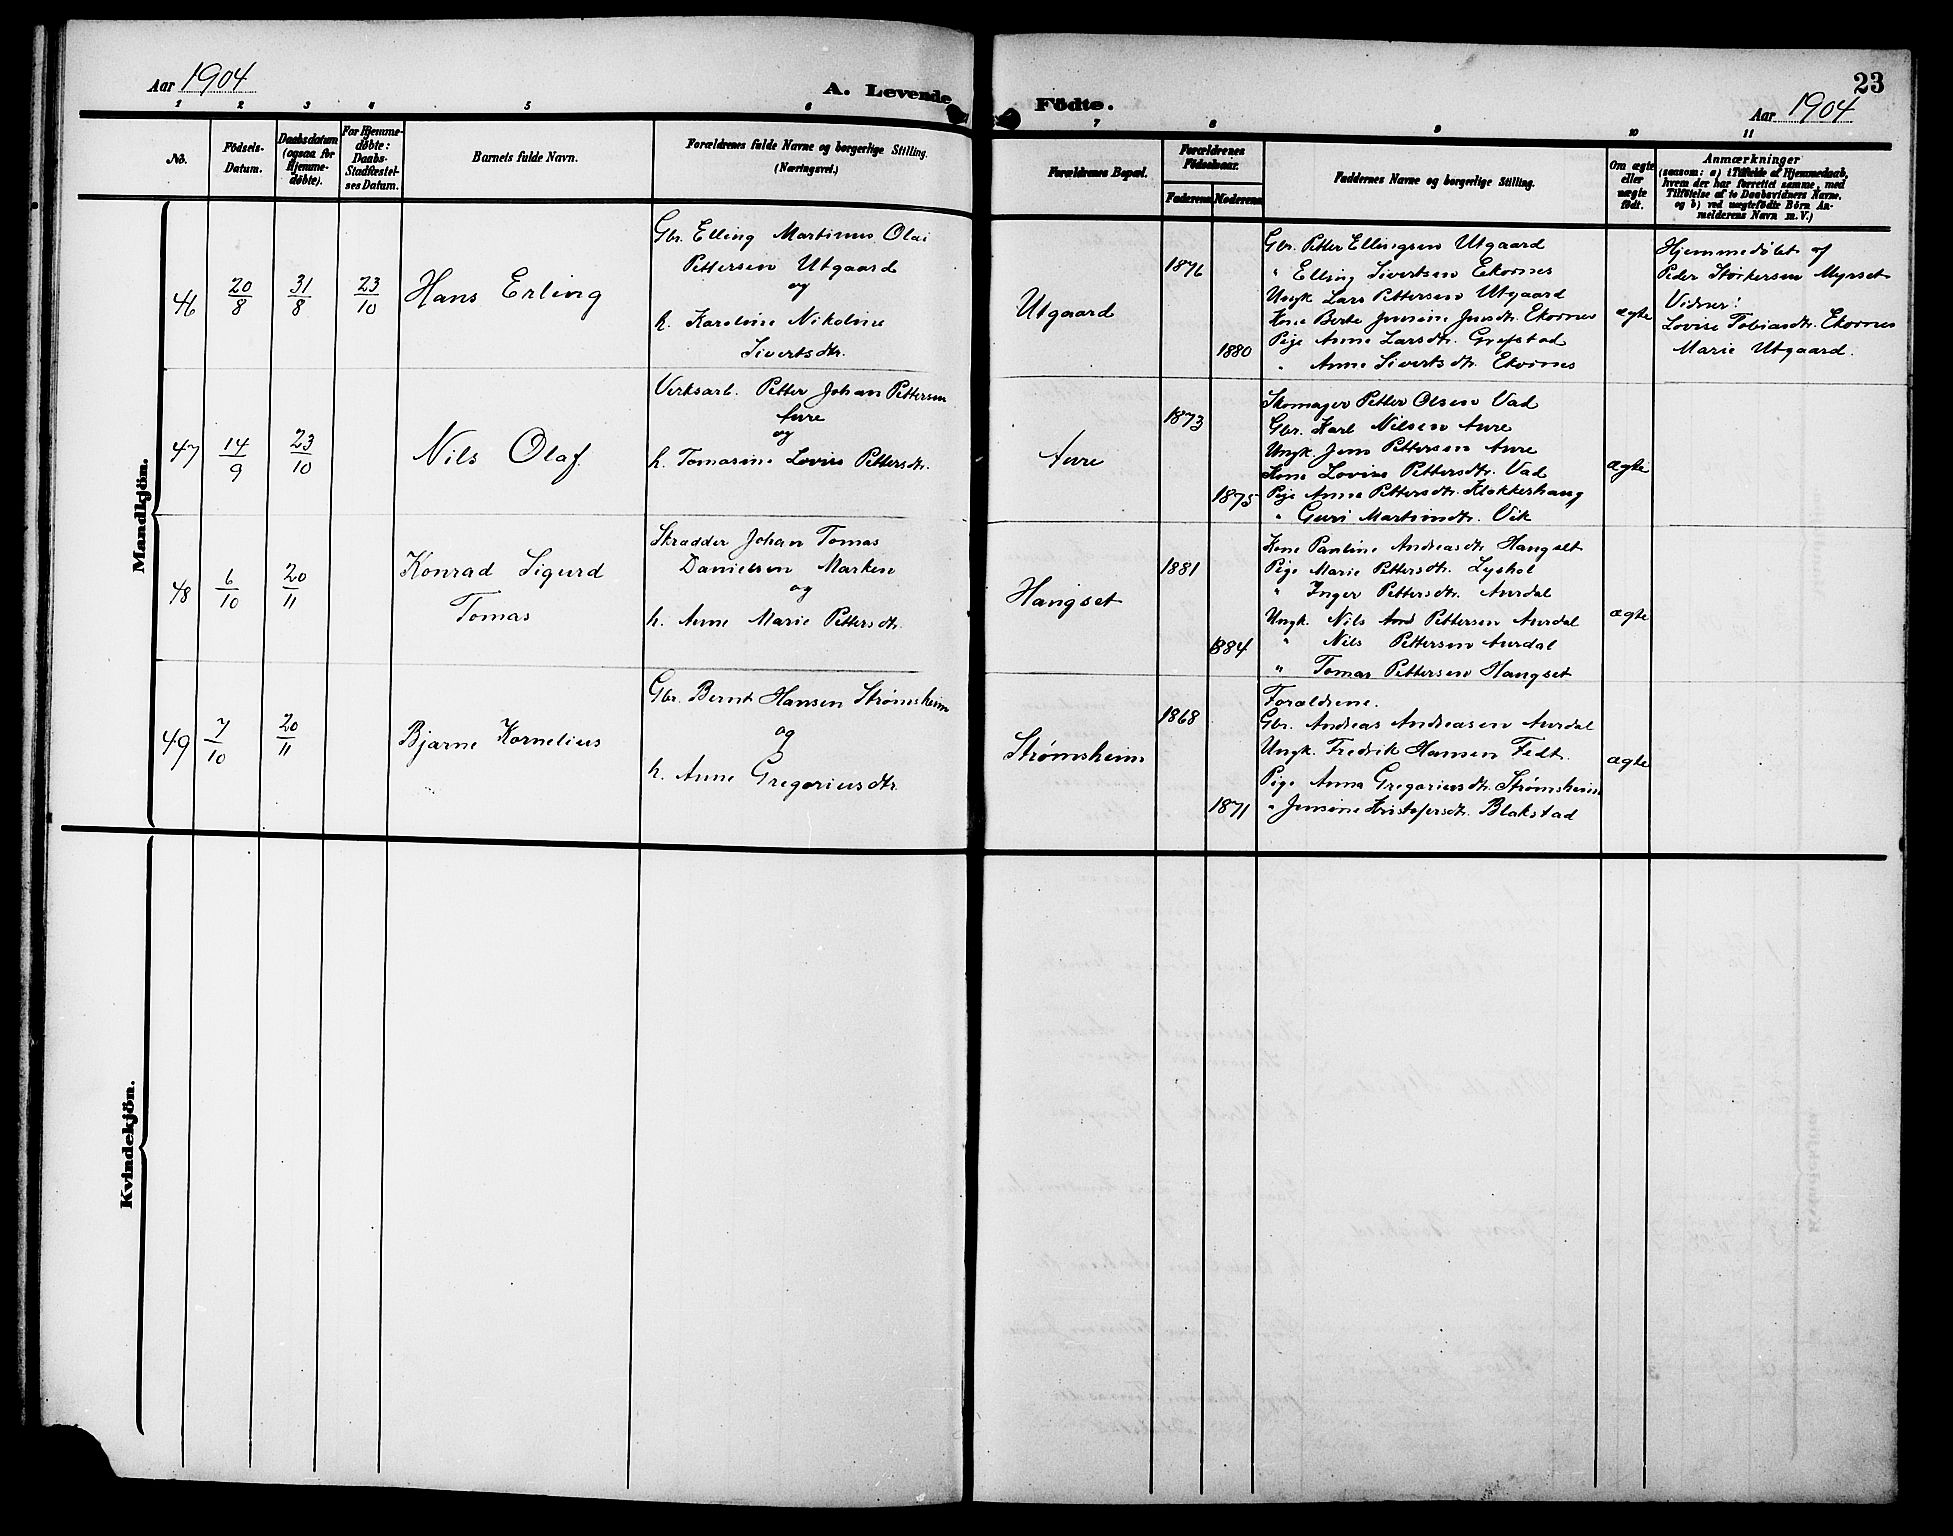 Aar 1904
A. Levende
1 2 3 4 5 6
No.
Födsels-Datum.
Daabsdatum (ogsaa for Hjemme-døbte).
For Hjemme-døbte: Daabs-Stadfæstel-ses Datum.
Barnets fulde Navn.
Forældrenes fulde Navne og borgerlige Stilling.
(Næringsvei.)
Mandkjön.
46 20/8 31/8 23/10 Hans Erling
Gbr. Elling Martinus Olai
Pettersen Utgaard
og
h. Karoline Nikoline
Sivertsdtr.
47 14/9 23/10 Nils Olaf
Verksarb. Petter Johan Pettersen
Aure
og
h. Tomasine Lovise Pettersdtr.
48 6/10 20/11 Konrad Sigurd
Tomas
Skrædder Johan Tomas
Danielsen Marken
og
h. Anne Marie Pettersdtr.
49 7/10 20/11 Bjarne Kornelius
Gbr. Bernt Hansen Strømsheim
og
h. Anne Gregoriusdtr.
Kvindekjön.
Födte.
23
Aar 1904
7 8 9 10 11
Forældrenes Bopæl.
Forældrenes Födselsaar.
Faderens Moderens
Faddernes Navne og borgerlige Stilling.
Om ægte eller uægte födt.
Anmærkninger
(saasom: a) i Tilfælde af Hjemmedaab,
hvem der har forrettet samme, med
Tilföielse af to Daabsvidners Navne,
og b) ved uægtefödte Börn An-
melderens Navn m. V.)
Utgaard 1876 1880
Gbr. Petter Ellingsen Utgaard
" Elling Sivertsen Ekornes
Ungk. Lars Pettersen Utgaard
Kone Berte Jensine Jensdtr. Ekornes
Pige Anne Larsdtr. Grefstad
" Anne Sivertsdtr. Ekornes
ægte
Hjemmedøbt af
Peder Størkersen Myrset
Vidner:
Lovise Tobiasdtr. Ekornes
Marie Utgaard.
Aure 1873 1875
Skomager Petter Olsen Vad
Gbr. Karl Nilsen Aure
Ungk. Jens Pettersen Aure
Kone Lovise Pettersdtr. Vad
Pige Anne Pettersdtr. Klokkerhaug
" Guri Martinsdtr. Vik
ægte
Haugset 1881 1884
Kone Pauline Andreasdtr. Haugset
Pige Marie Pettersdtr. Lyshol
" Inger Pettersdtr. Aurdal
Ungk. Nils And Pettersen Aurdal
" Nils Pettersen Aurdal
" Tomas Pettersen Haugset
ægte
Strømsheim 1868 1871
Forældrene.
Gbr. Andreas Andreasen Aurdal
Ungk. Fredrik Hansen Fedt.
Pige Anna Gregoriusdtr. Strømsheim
" Jensine Kristofersdtr. Blakstad
ægte